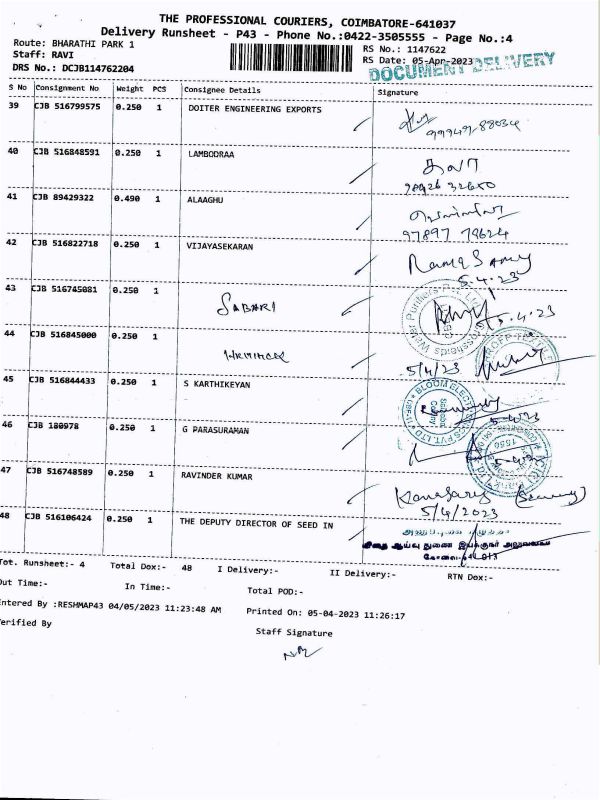 THE PROFESSIONAL COURIERS, COIMBATORE-641037
Delivery Runsheet - P43 - Phone No.:0422-3505555 - Page No.:4
Route: BHARATHI PARK 1
RS No.: 1147622
Staff: RAVI
RS Date: 05-Apr-2023
DRS No.: DCJB114762204
DOCUMENT DELIVERY
S No Consignment No Weight PCS Consignee Details Signature
39 CJB 516799575 0.250 1 DOITER ENGINEERING EXPORTS
40 CJB 516848591 0.250 1 LAMBODRAA
41 CJB 89429322 0.490 1 ALAAGHU
97897 78624
42 CJB 516822718 0.250 1 VIJAYASEKARAN
5.4.23
43 CJB 516745081 0.250 1 SABARI
44 CJB 516845000 0.250 1
5/4/23
45 CJB 516844433 0.250 1 S KARTHIKEYAN
46 CJB 180978 0.250 1 G PARASURAMAN
47 CJB 516748589 0.250 1 RAVINDER KUMAR
5/4/2023
48 CJB 516106424 0.250 1 THE DEPUTY DIRECTOR OF SEED IN
Tot. Runsheet:- 4 Total Dox:- 48 I Delivery:- II Delivery:- RTN Dox:-
Out Time:- In Time:- Total POD:-
Entered By :RESHMAP43 04/05/2023 11:23:48 AM Printed On: 05-04-2023 11:26:17
Verified By
Staff Signature